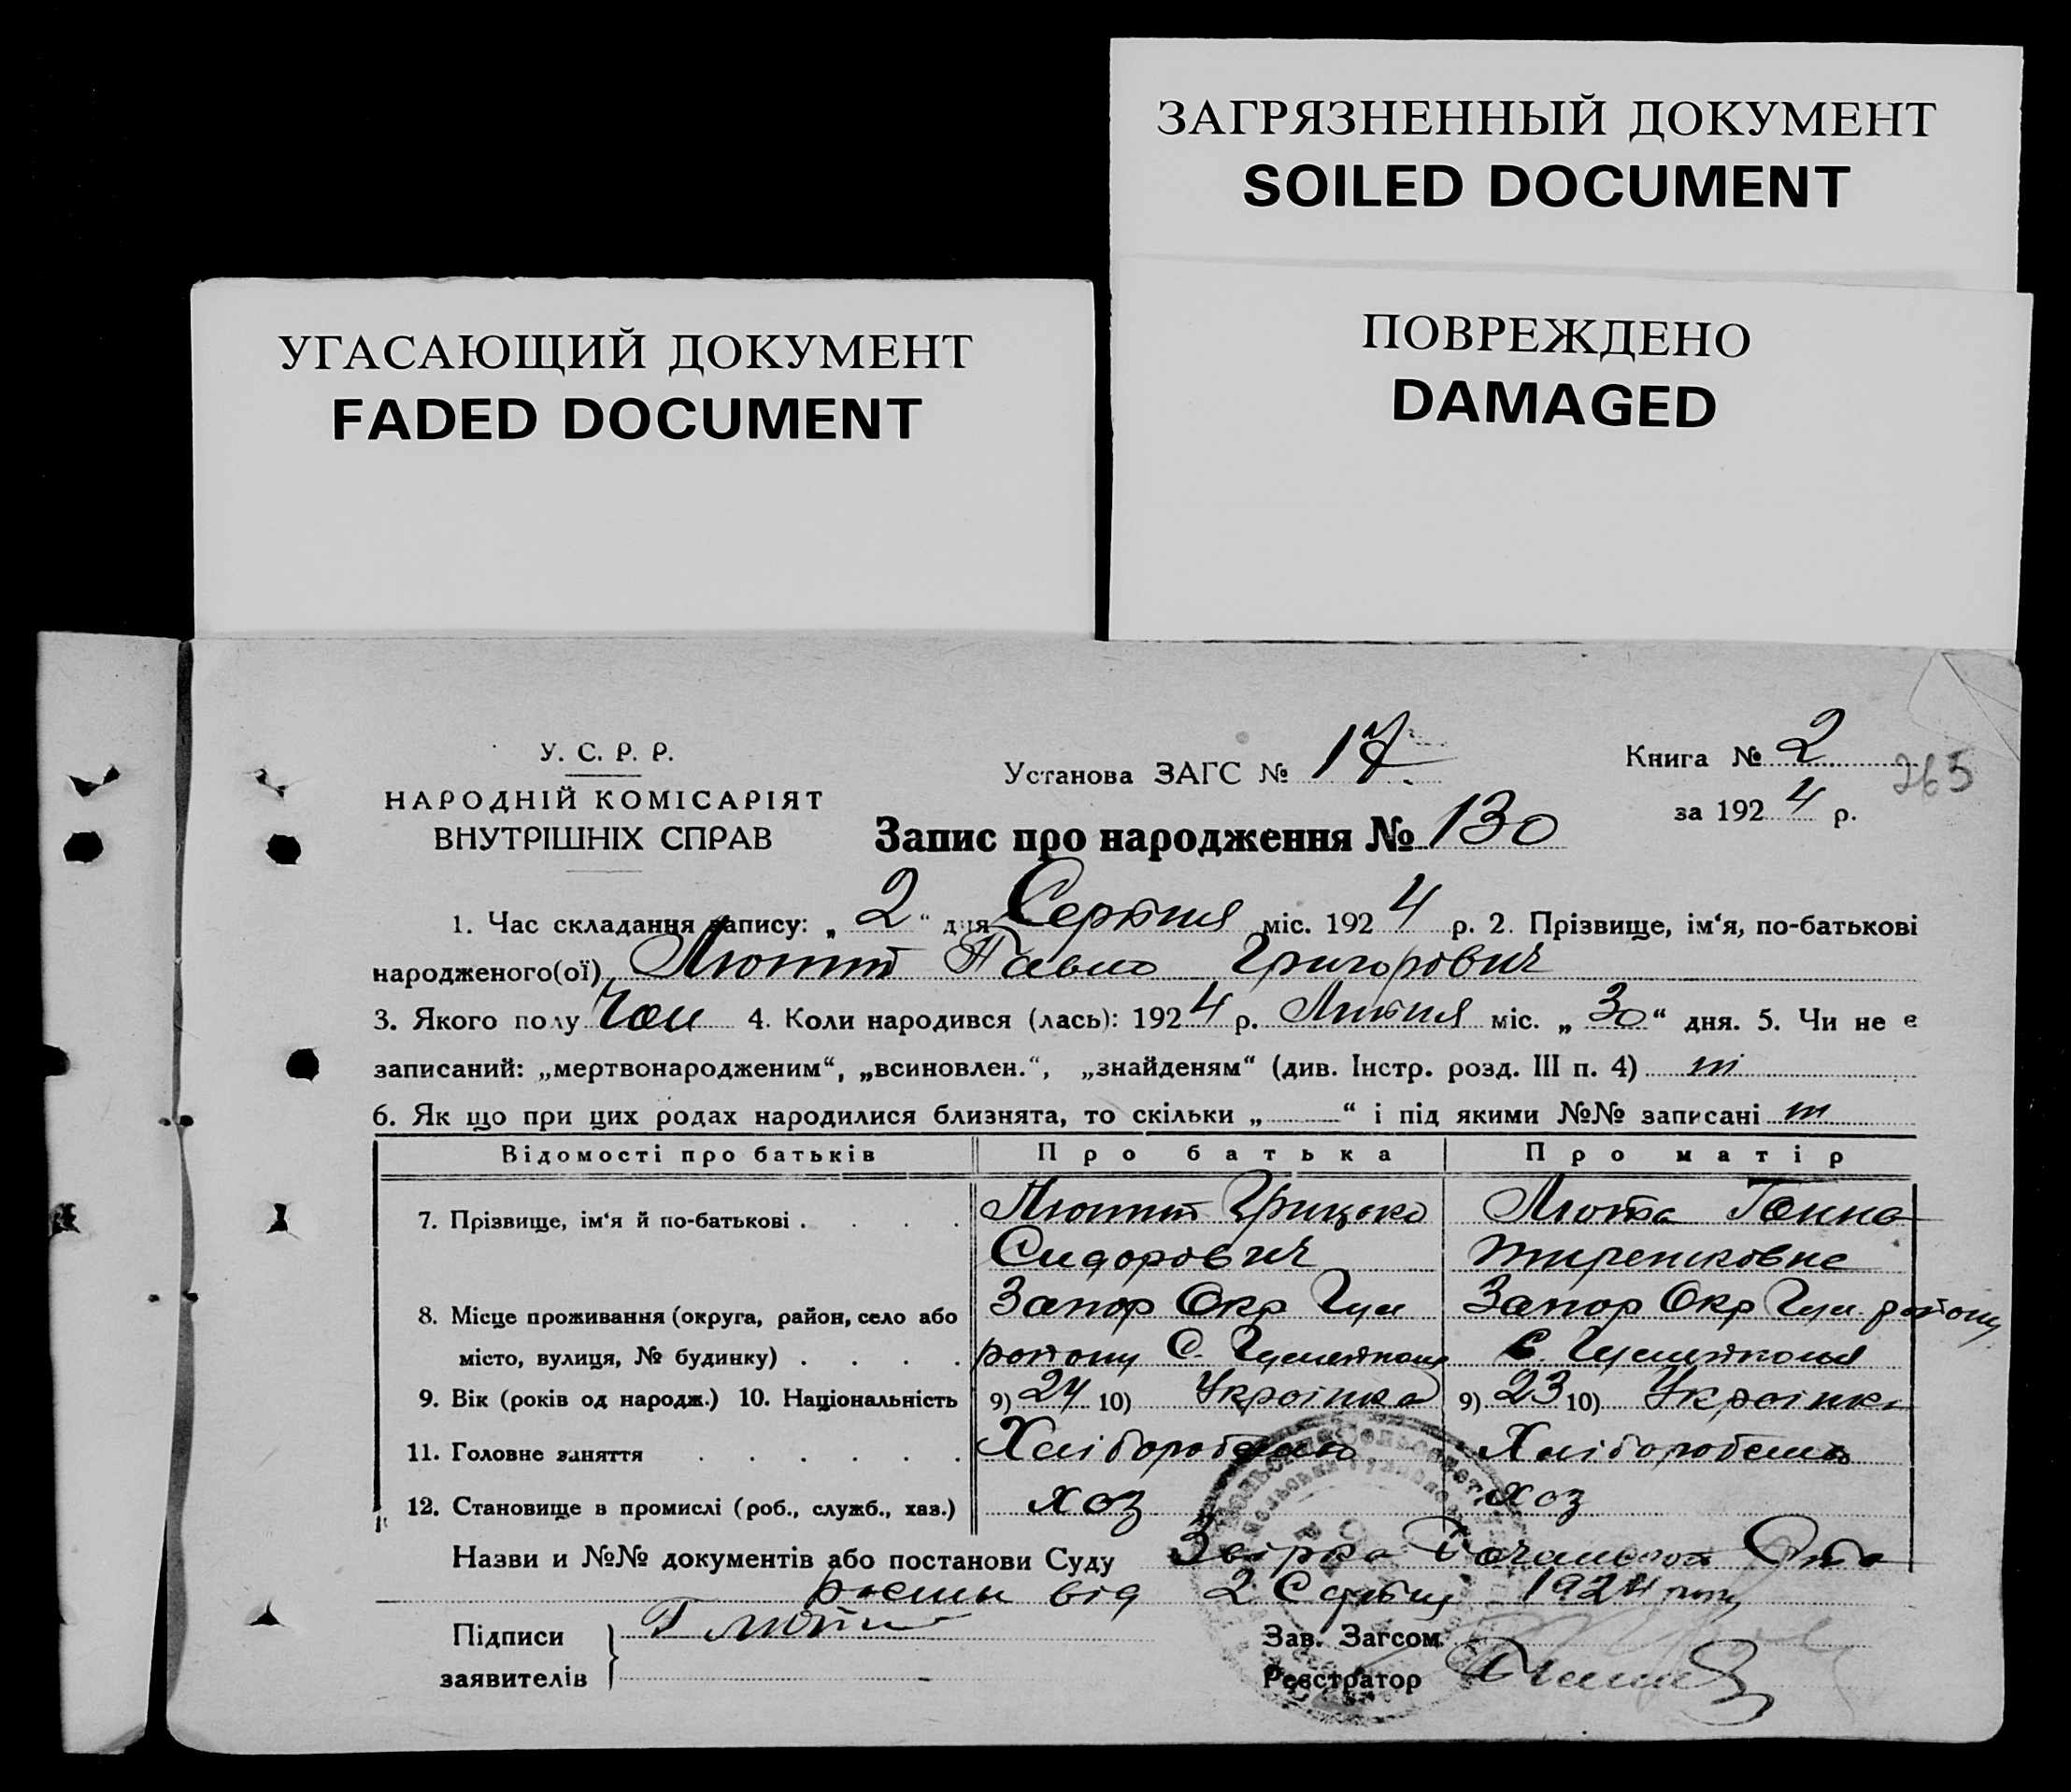 ЗАГРЯЗНЕННЫЙ ДОКУМЕНТ
SOILED DOCUMENT
УГАСАЮЩИЙ ДОКУМЕНТ
FADED DOCUMENT
ПОВРЕЖДЕНО
DAMAGED
У. С. Р. Р.
НАРОДНІЙ КОМІСАРІЯТ
ВНУТРІШНІХ СПРАВ
Установа ЗАГС № 17
Запис про народження № 130
Книга № 2
265
за 1924 р.
1. Час складання запису: „2“ дня Серпня міс. 1924 р. 2. Прізвище, ім‘я, по-батькові
народженого(ої) Лютий Павло Григорович
3. Якого полу Чол 4. Коли народився (лась): 1924 р. Липня міс. „30“ дня. 5. Чи не є
записаний: „мертвонародженим“, „всиновлен.“, „знайденям“ (див. Інстр. розд. III п. 4) ні
6. Як що при цих родах народилися близнята, то скільки „ “ і під якими №№ записані ні
Відомості про батьків Про батька Про матір
7. Прізвище, ім‘я й по-батькові . . . . Лютий Грицько Люта Ганна
Сидорович
8. Місце проживання (округа, район, село або Запор Окр Гул Запор Окр Гул. району
місто, вулиця, № будинку) . . . . району С. Гуляйполя С. Гуляйполя
9. Вік (років од народж.) 10. Національність 9) 24 10) Украінка 9) 23 10) Украінка
11. Головне заняття . . . . . . Хліборобство Хліборобство
12. Становище в промислі (роб., служб., хаз.) хоз хоз
Назви и №№ документів або постанови Суду
від 2 Серпня 1924 року
Підписи
заявителів
Г Лютий
Зав. Загсом
Реєстратор